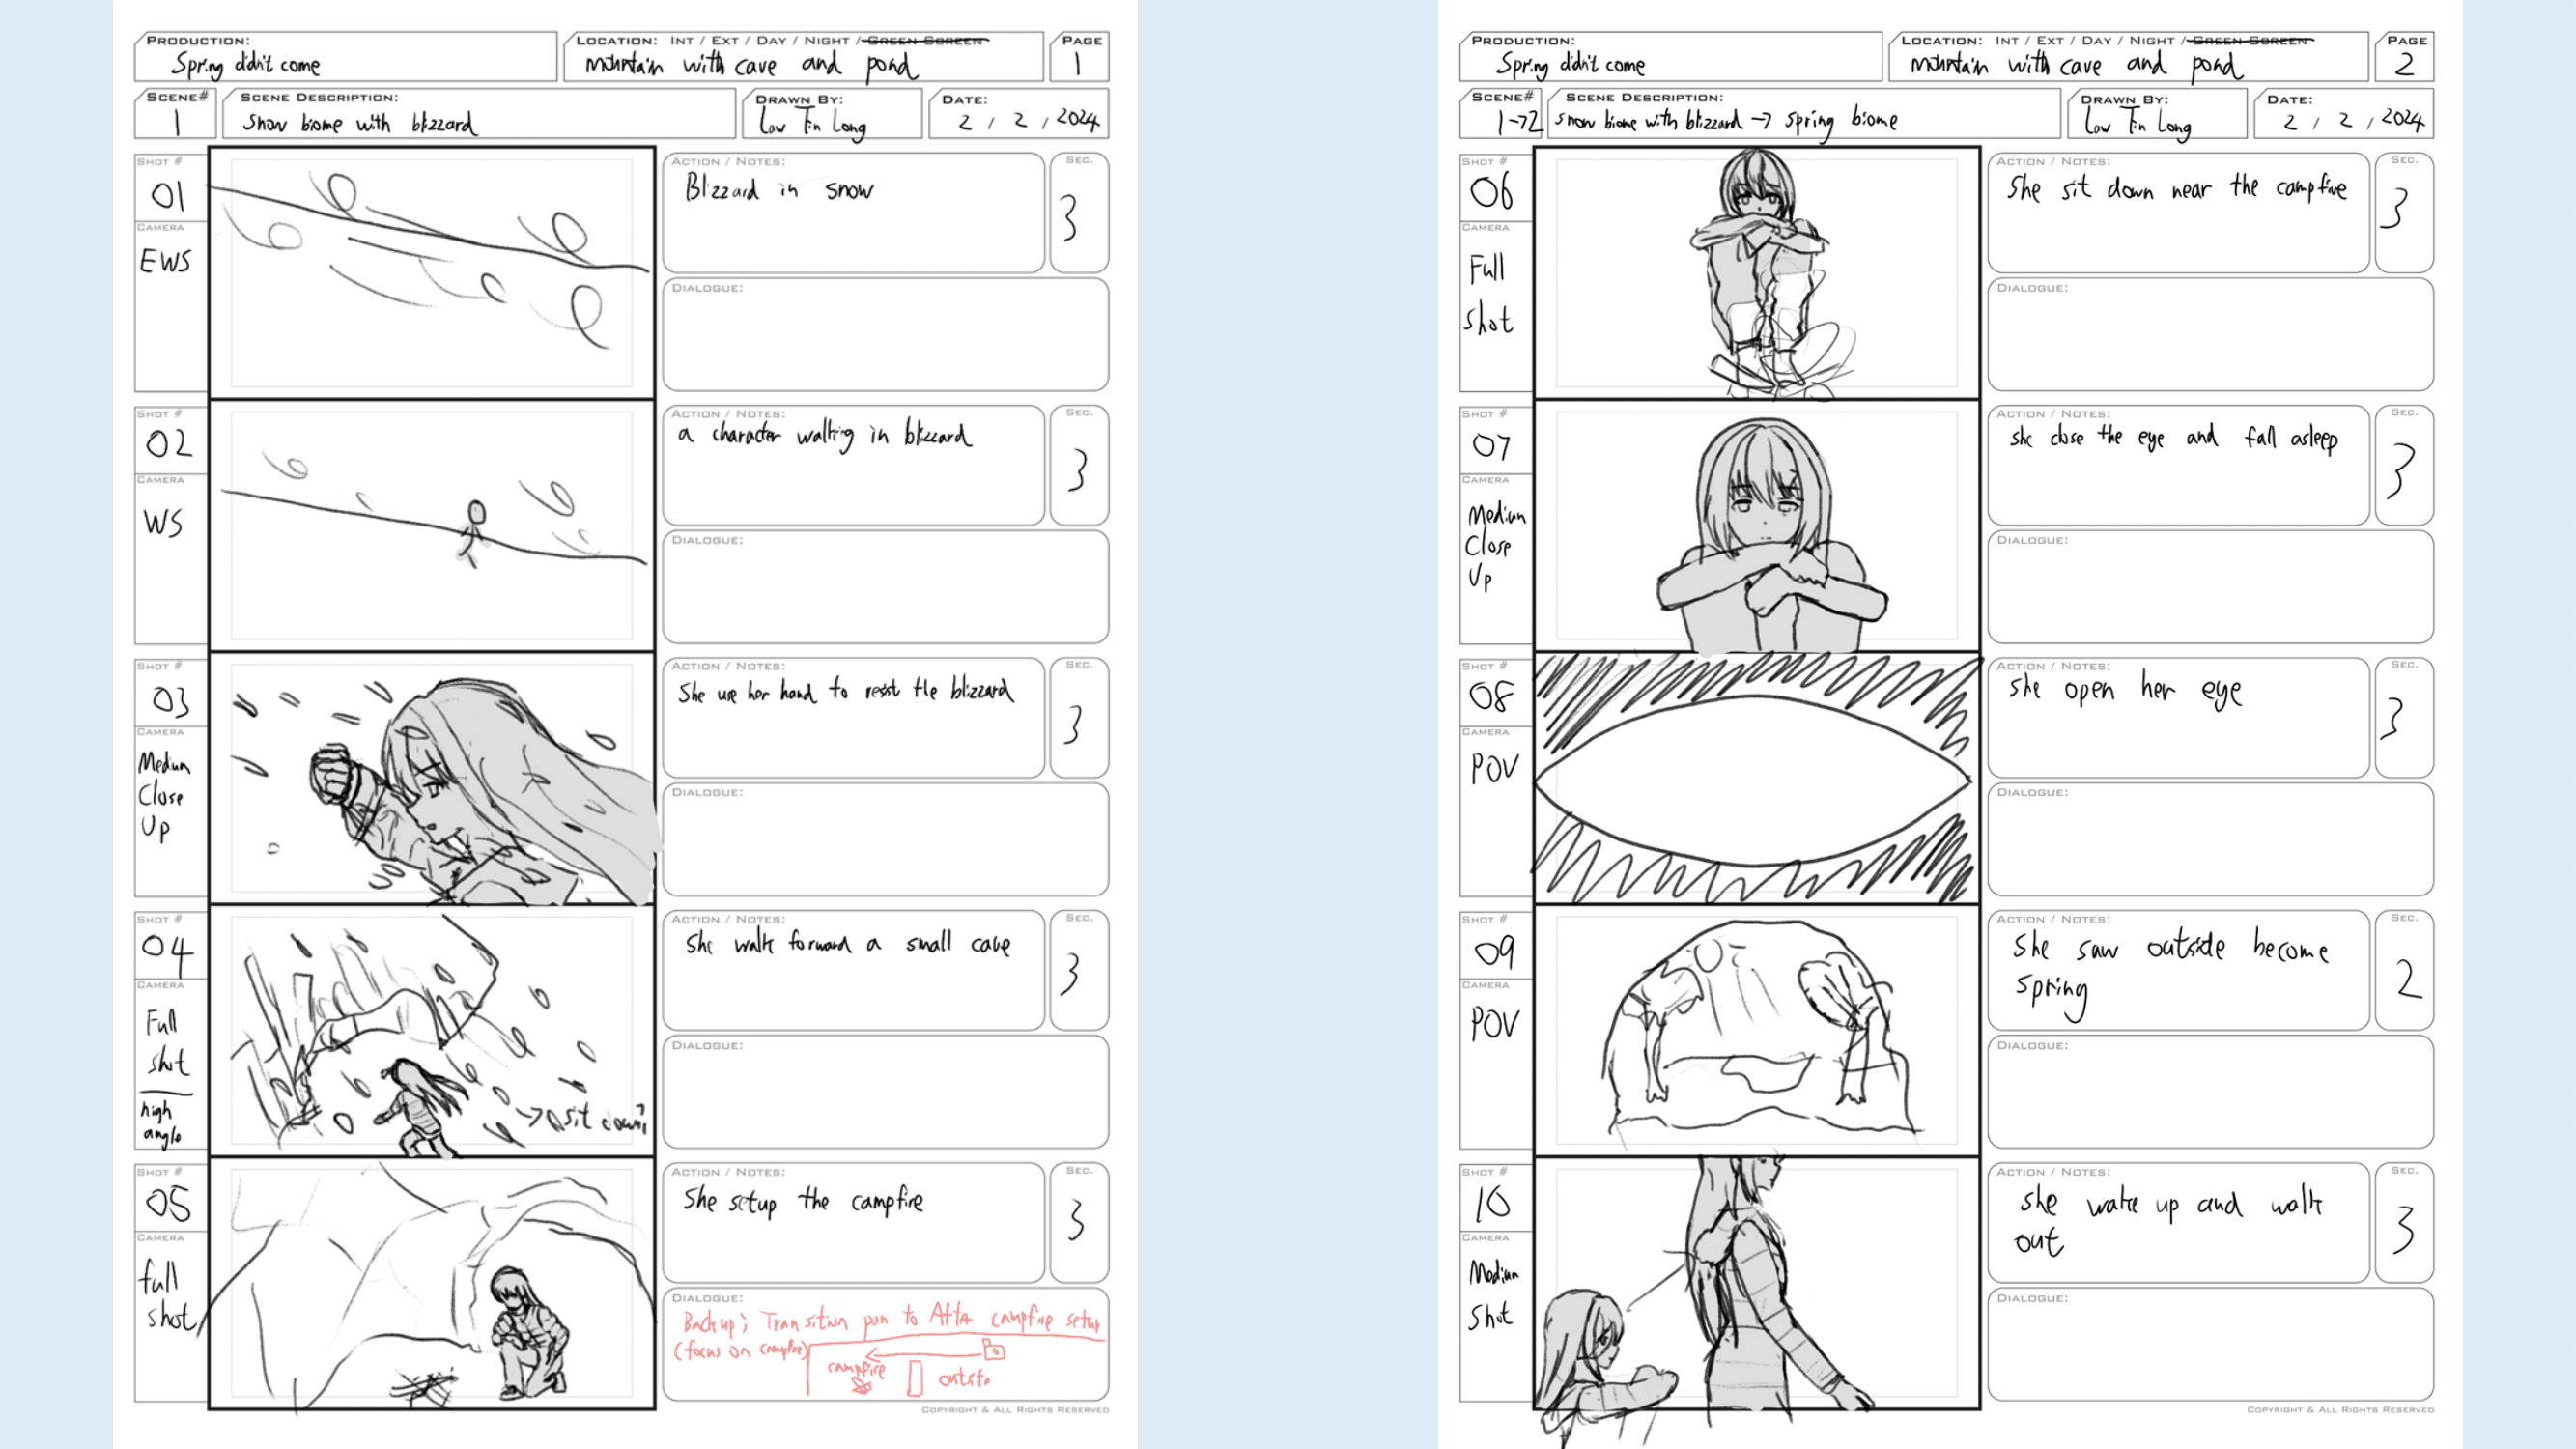 PRODUCTION:
Spring didn't come
LOCATION: INT / EXT / DAY / NIGHT / GREEN SCREEN
mountain with cave and pond
PAGE
1
SCENE#
1
SCENE DESCRIPTION:
snow biome with blizzard
DRAWN BY:
Low Tin Long
DATE:
2 / 2 , 2024
SHOT #
01
CAMERA
EWS
ACTION / NOTES:
Blizzard in snow
SEC.
3
DIALOGUE:
SHOT #
02
CAMERA
WS
ACTION / NOTES:
a character walking in blizzard
SEC.
3
DIALOGUE:
SHOT #
03
CAMERA
Medium
Close
Up
ACTION / NOTES:
She use her hand to resist the blizzard
SEC.
3
DIALOGUE:
SHOT #
04
CAMERA
Full
shot
high
angle
→ sit down?
ACTION / NOTES:
She walk forward a small cave
SEC.
3
DIALOGUE:
SHOT #
05
CAMERA
full
shot
ACTION / NOTES:
She setup the campfire
SEC.
3
DIALOGUE:
Backup; Transition pan to After campfire setup
(focus on campfire)
campfire
outside
COPYRIGHT & ALL RIGHTS RESERVED
PRODUCTION:
Spring didn't come
LOCATION: INT / EXT / DAY / NIGHT / GREEN SCREEN
mountain with cave and pond
PAGE
2
SCENE#
1→2
SCENE DESCRIPTION:
snow biome with blizzard → spring biome
DRAWN BY:
Low Tin Long
DATE:
2 / 2 , 2024
SHOT #
06
CAMERA
Full
shot
ACTION / NOTES:
She sit down near the campfire
SEC.
3
DIALOGUE:
SHOT #
07
CAMERA
Medium
Close
Up
ACTION / NOTES:
she close the eye and fall asleep
SEC.
3
DIALOGUE:
SHOT #
08
CAMERA
POV
ACTION / NOTES:
she open her eye
SEC.
3
DIALOGUE:
SHOT #
09
CAMERA
POV
ACTION / NOTES:
She saw outside become
spring
SEC.
2
DIALOGUE:
SHOT #
10
CAMERA
Medium
Shot
ACTION / NOTES:
she wake up and walk
out
SEC.
3
DIALOGUE:
COPYRIGHT & ALL RIGHTS RESERVED